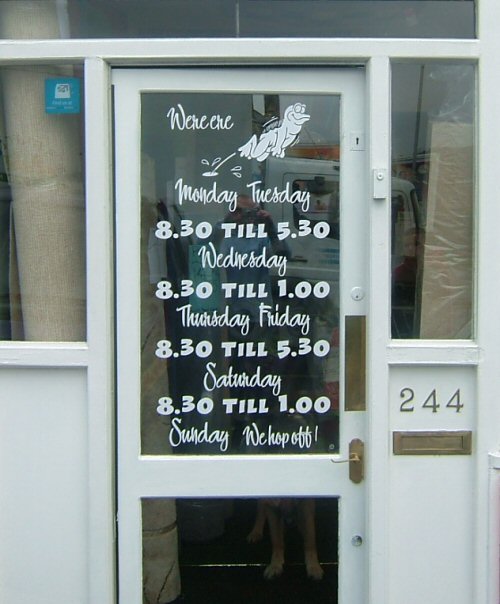 We're ere
Monday Tuesday
8.30 TILL 5.30
Wednesday
8.30 TILL 1.00
Thursday Friday
8.30 TILL 5.30
Saturday
8.30 TILL 1.00
Sunday We hop off!
244